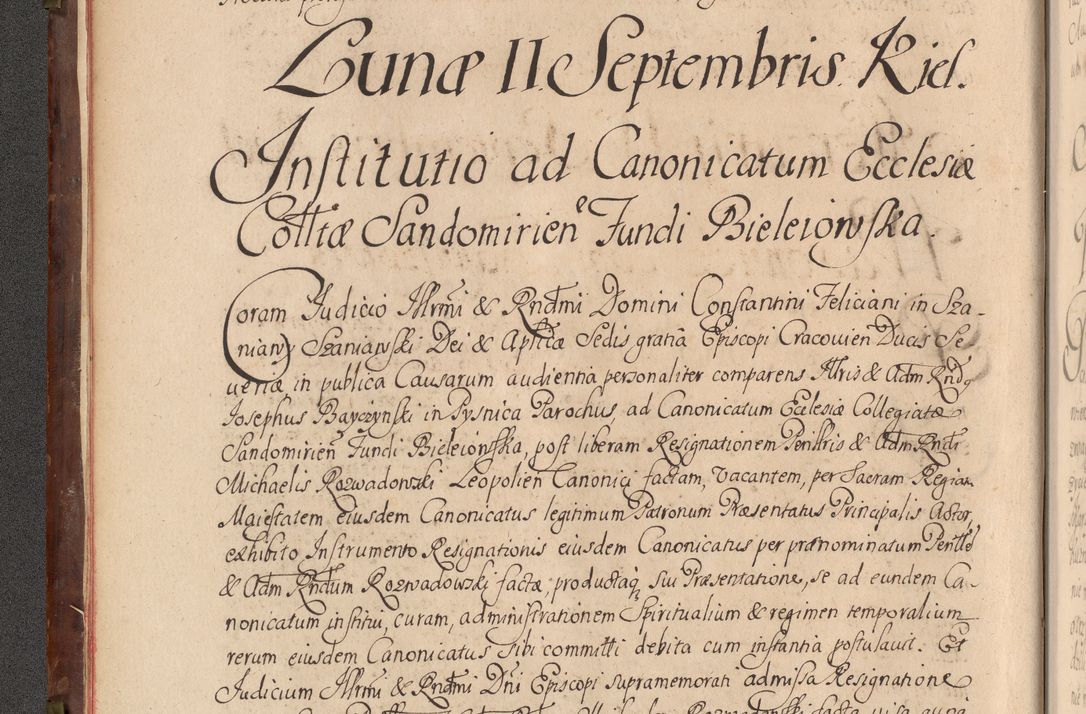 Lunæ II Septembris. Kiel.
Institutio ad Canonicatum Ecclesiæ
Colltæ Sandomirien Fundi Bieleiowska.
Coram Judicio Illrmi & Rndmi Domini Constantini Feliciani in Sza-
niawy Szaniawski Dei & Aplicæ Sedis gratia Episcopi Cracovien Ducis Se
veriæ in publica Causarum audientia personaliter comparens Illris & Adm Rndq
Iosephus Bayczynski in Pysnica Parochus ad Canonicatum Ecclesiæ Collegiatæ
Sandomirien Fundi Bieleiowska, post liberam Resignationem Perillris & Adm Rndi
Michaelis Rozwadowski Leopolien Canonici factam, vacantem, per Sacram Regiam
Maiestatem eiusdem Canonicatus legitimum Patronum Præsentatus Principalis Actor,
exhibito Instrumento Resignationis eiusdem Canonicatus per prænominatum Perille
& Adm Rndum Rozwadowski factæ, productaq sui Præsentatione, se ad eundem Ca-
nonicatum institui, curam, administrationem Spiritualium & regimen temporalium
rerum eiusdem Canonicatus sibi committi debita cum instantia postulavit. Et
Judicium Illrmi & Rndmi Dni Episcopi supramemorati admissa Resignatione